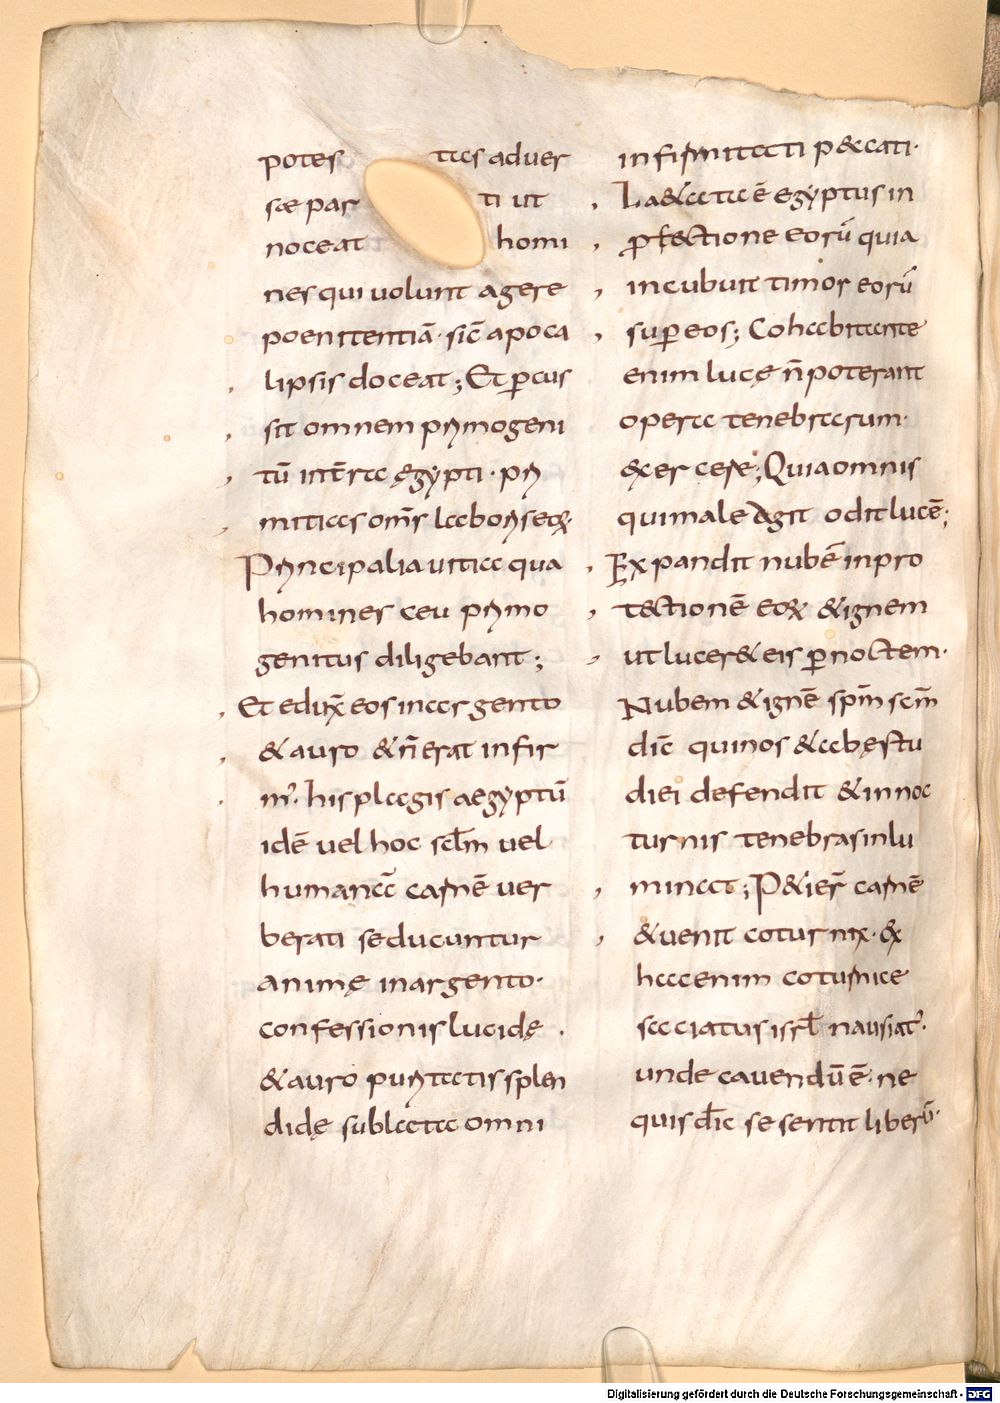 potes tas aduer
sae par ti ut
noceat homi
nes qui uolunt agere
poenitentiā· sic̄ apoca
lipsis doceat; Et ꝑcus
sit omnem primogeni
tū interra ęgypti· pri
mitias om̄s laboris eoꝝ·
Principalia uitia qua
homines ceu primo
genitus diligebant;
Et edux̄ eos in argento
& auro & n̄ erat infir
m'· his plagis aegyptū
idē uel hoc sc̄lm uel
humanā carnē uer
berati seducuntur
animę in argento·
confessionis lucidę ·
& auro puritatis splen
didę sublata omni
infirmitati peccati·
Laetata ē egyptus in
ꝓfectione eorū quia
incubuit timor eorū
suꝑ eos; Cohabitante
enim lucę n̄ poterant
opera tenebrarum·
exercere; Quia omnis
qui male agit odit lucē;
Expandit nubē in pro
tectionē eoꝝ & ignem
ut luceret eis ꝑ noctem·
Nubem & ignē sp̄m sc̄m
dic̄ qui nos & ab ęstu
diei defendit & in noc
turnis tenebras inlu
minat; Petier̄ carnē
& uenit coturnix· &
hac enim coturnice
saciatus isr̄l nausiat'·
unde cauendū ē· ne
quis dic̄ se sentit liberū·
Digitalisierung gefördert durch die Deutsche Forschungsgemeinschaft - DFG